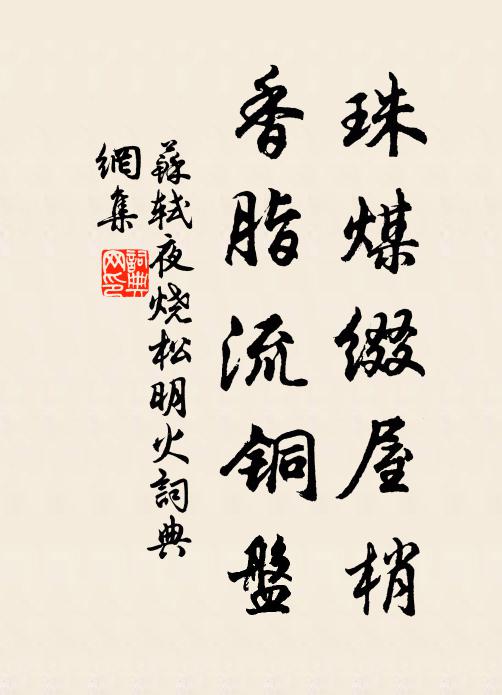 珠煤缀屋梢
香脂流铜盤
蘇軾夜烧松明火詞典
網集
詞典网印